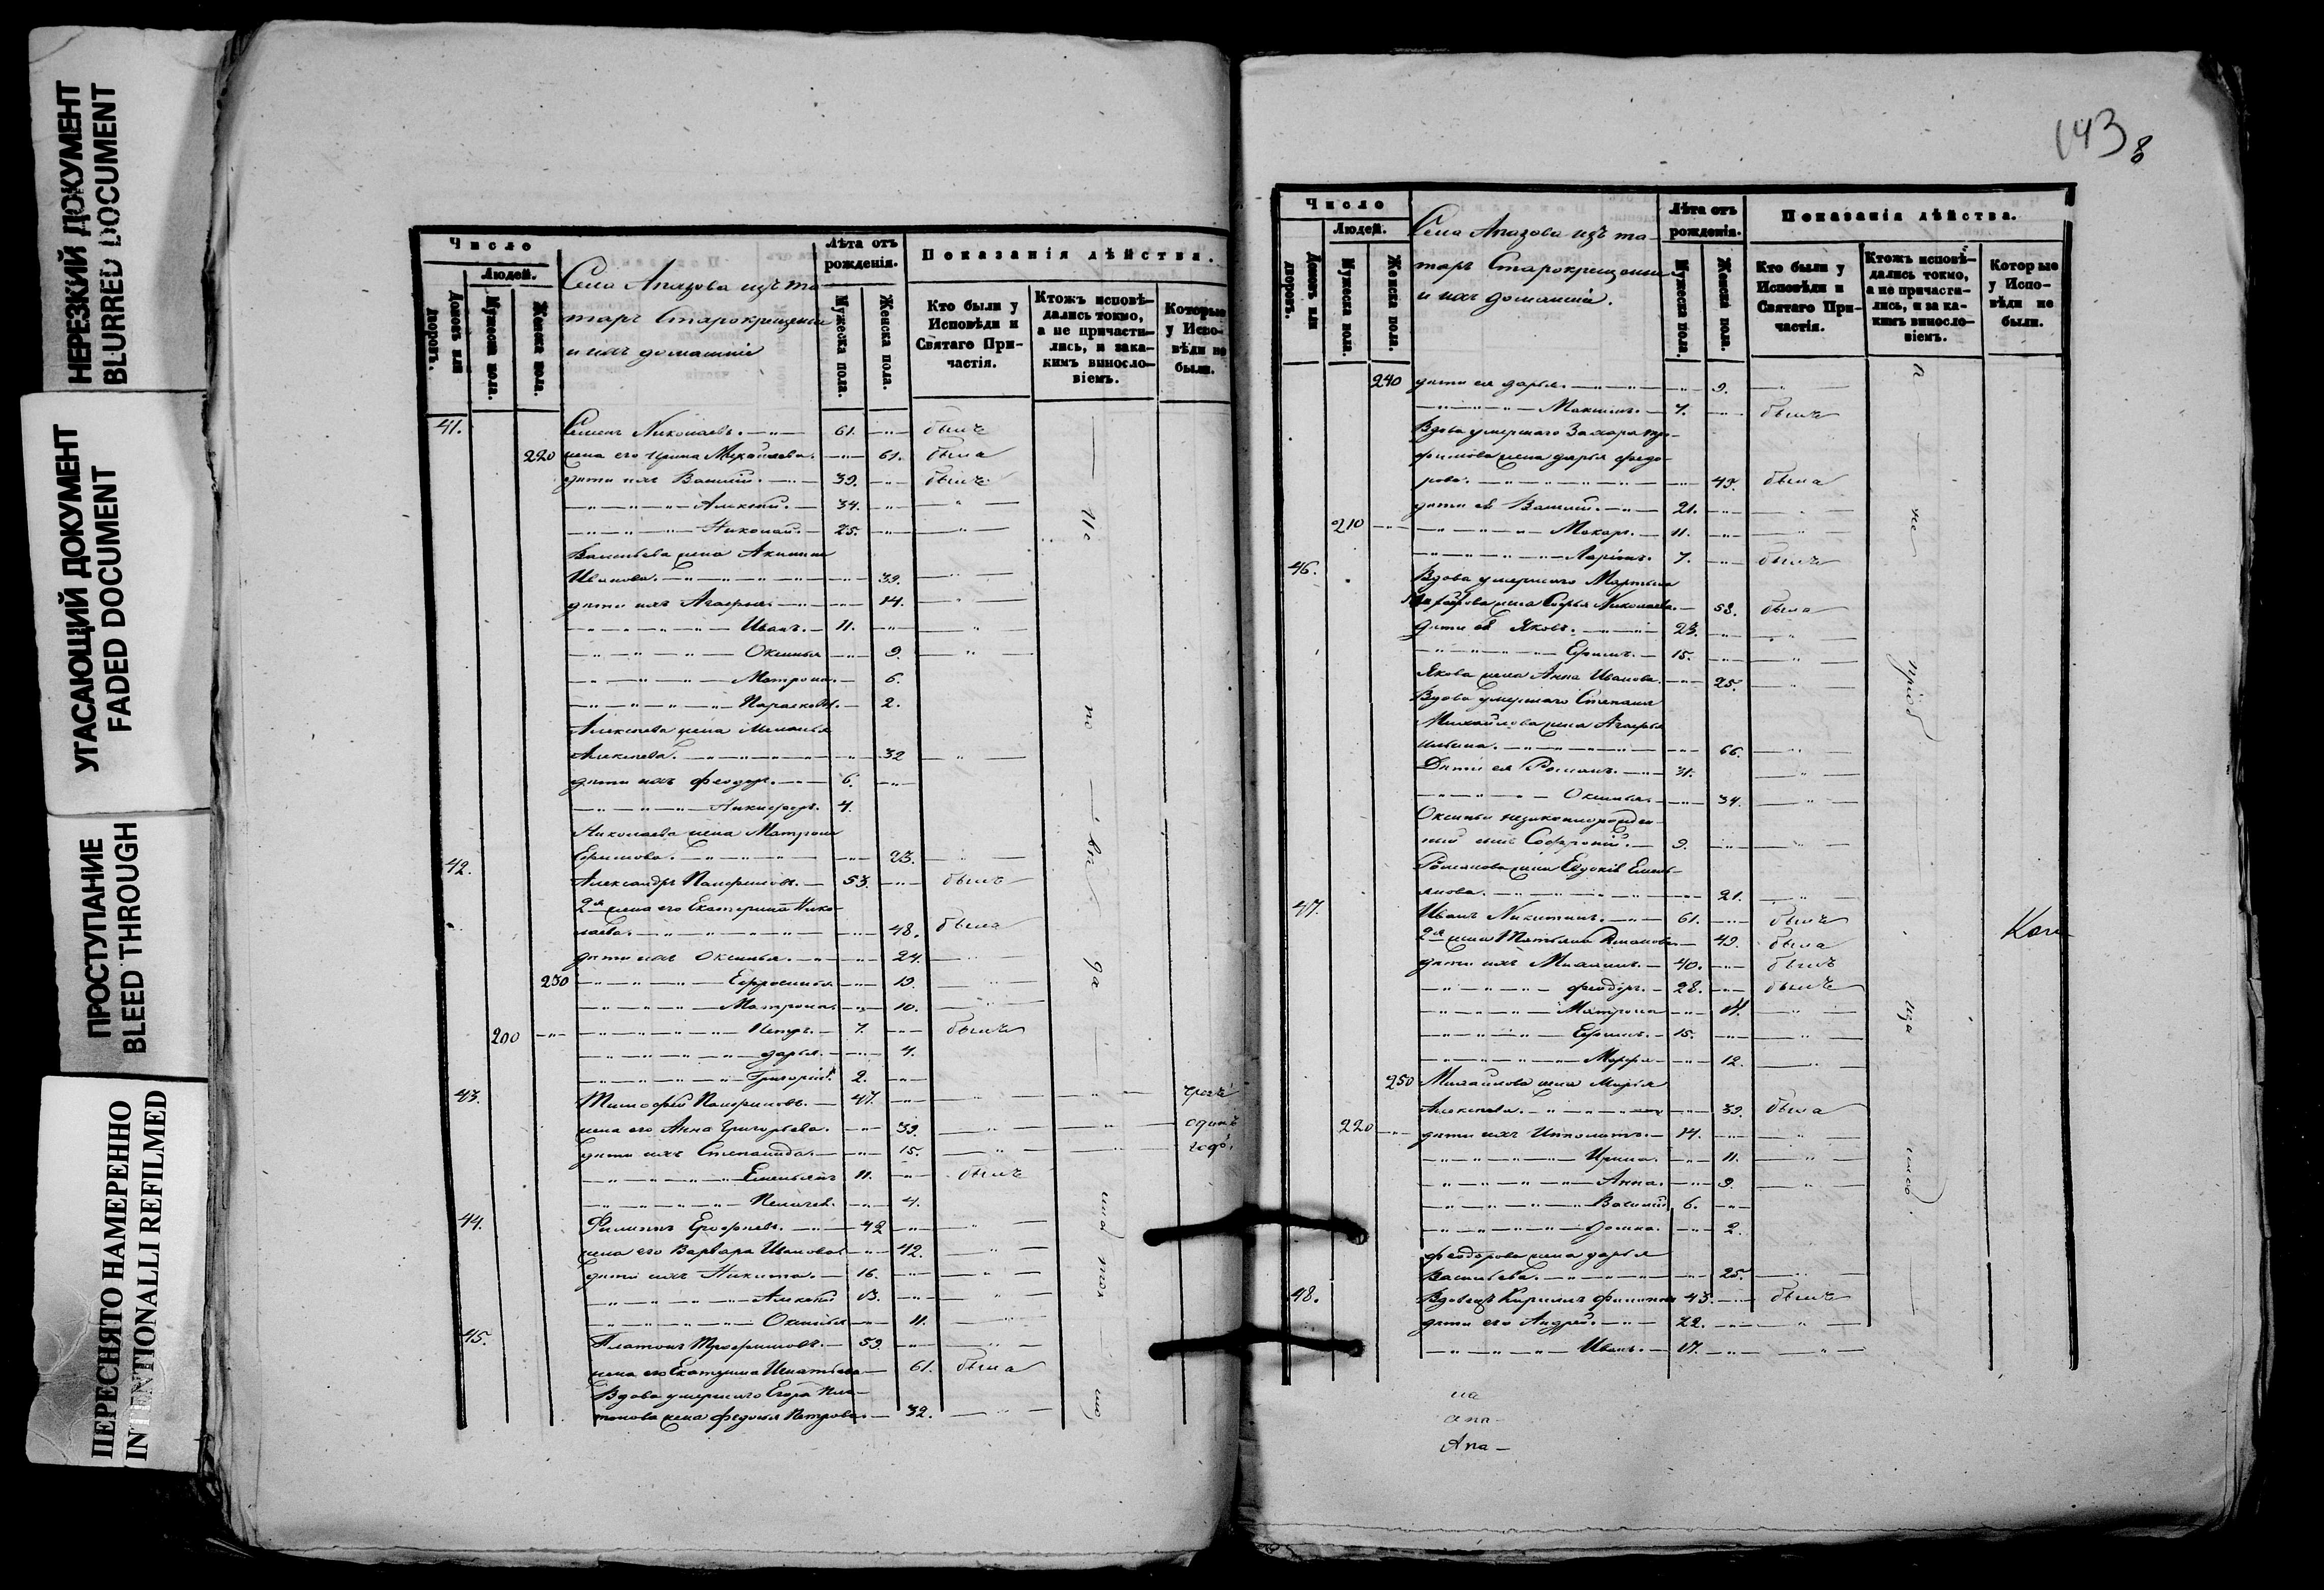 НЕРЕЗКИЙ ДОКУМЕНТ
BLURRED DOCUMENT
УГАСАЮЩИЙ ДОКУМЕНТ
FADED DOCUMENT
ПРОСТУПАНИЕ
BLEED THROUGH
ПЕРЕСНЯТО НАМЕРЕННО
INTENTIONALLI REFILMED
Число
Людей.
Домовъ или дворовъ.
Мужеска пола.
Женска пола.
Села Апазова изъ та-
таръ Старокрещены
и ихъ домашніе
Лѣта отъ рожденія.
Мужеска пола.
Женска пола.
Показанія дѣйства.
Кто были у Исповѣди и Святаго При-частія.
Ктожъ исповѣ-дались токмо, а не причасти-лись, и зака-кимъ виносло-віемъ.
Которые у Испо-вѣди не были.
41. Семенъ Николаевъ. 61. былъ
220 жена его Ирина Михайлова. 61. была
дѣти ихъ Василій. 39. былъ
Алексѣй. 34.
Николай. 25.
Васильева жена Акилина
Иванова. 39.
дѣти ихъ Агафья. 14.
Иванъ. 11.
Оксинья 9.
Матрона. 6.
Параскова. 2.
Алексѣева жена Меланья
Алексѣева. 32
дѣти ихъ Феодоръ. 6.
Никифоръ. 4.
Николаева жена Матрона
Ефимова. 23.
42. Александръ Панфиловъ. 53. былъ
2я жена его Екатерина Нико-
лаева. 48. была
дѣти ихъ Оксинья. 24.
230 Ефросинья 19.
Матрона. 10.
200 Петръ. 7. былъ
Дарья. 4.
Григорій 2.
43. Тимофей Панфиловъ. 47.
жена его Анна Григорьева. 39. одинъ
дѣти ихъ Степанида. 15. годъ.
Емельянъ 11. былъ
Пелагея. 4.
44. Филиппъ Ерофеевъ. 42
жена его Варвара Иванова 42.
дѣти ихъ Никита. 16.
Алексѣй 13.
Оксинья 11.
45. Платонъ Трофимовъ. 59.
жена его Екатерина Игнатьева 61. была
Вдова умершаго Егора Пла-
тонова жена Федосья Петрова. 32.
Не по вы да
143 8
Число
Людей.
Домовъ или дворовъ.
Мужеска пола.
Женска пола.
Села Апазова изъ та-
таръ Старокрещены
и ихъ домашніе.
Лѣта отъ рожденія.
Мужеска пола.
Женска пола.
Показанія дѣйства.
Кто были у Исповѣди и Святаго При-частія.
Ктожъ исповѣ-дались токмо, а не причасти-лись, и за ка-кимъ виносло-віемъ.
Которые у Испо-вѣди не были.
240 дѣти ея Дарья. 9.
Максимъ. 7. былъ
Вдова умершаго Захара Тро-
фимова жена Дарья Федо-
рова. 49. была
дѣти её Василій. 21.
210 Макаръ. 11.
Ларіонъ. 7. былъ
46. Вдова умершаго Мартына
жена Софья Николаева. 58. была
дѣти её Яковъ. 23.
Ефимъ. 15.
Якова жена Анна Иванова. 25.
Вдова умершаго Степана
Михайлова жена Агафья
Ильина. 66.
Дѣти ея Романъ. 31.
Оксинья. 34.
Оксиньи незаконнорожден-
ный сынъ Софроній. 9.
Романова жена Евдокія Емель-
янова. 21.
47. Иванъ Никитинъ. 61. былъ
2я жена Татьяна Романова 49. была
дѣти ихъ Михаилъ. 40. былъ
Феодоръ. 28. былъ
Матрона 17.
Ефимъ. 15.
Марфа 12.
250 Михайлова жена Марья
Алексѣева. 39. была
220 дѣти ихъ Ипполитъ. 14.
Ирина. 11.
Анна. 9.
Василій 6.
Домна. 2.
Феодорова жена Дарья
Васильева. 25.
48. Вдовецъ Кирилъ Филиповъ 43. былъ
дѣти его Андрей. 22.
Иванъ. 17.
не